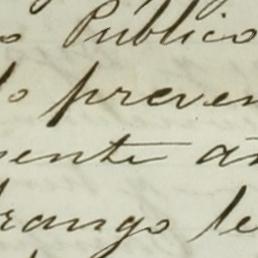 o Publico
lo preven
mente an
rango le